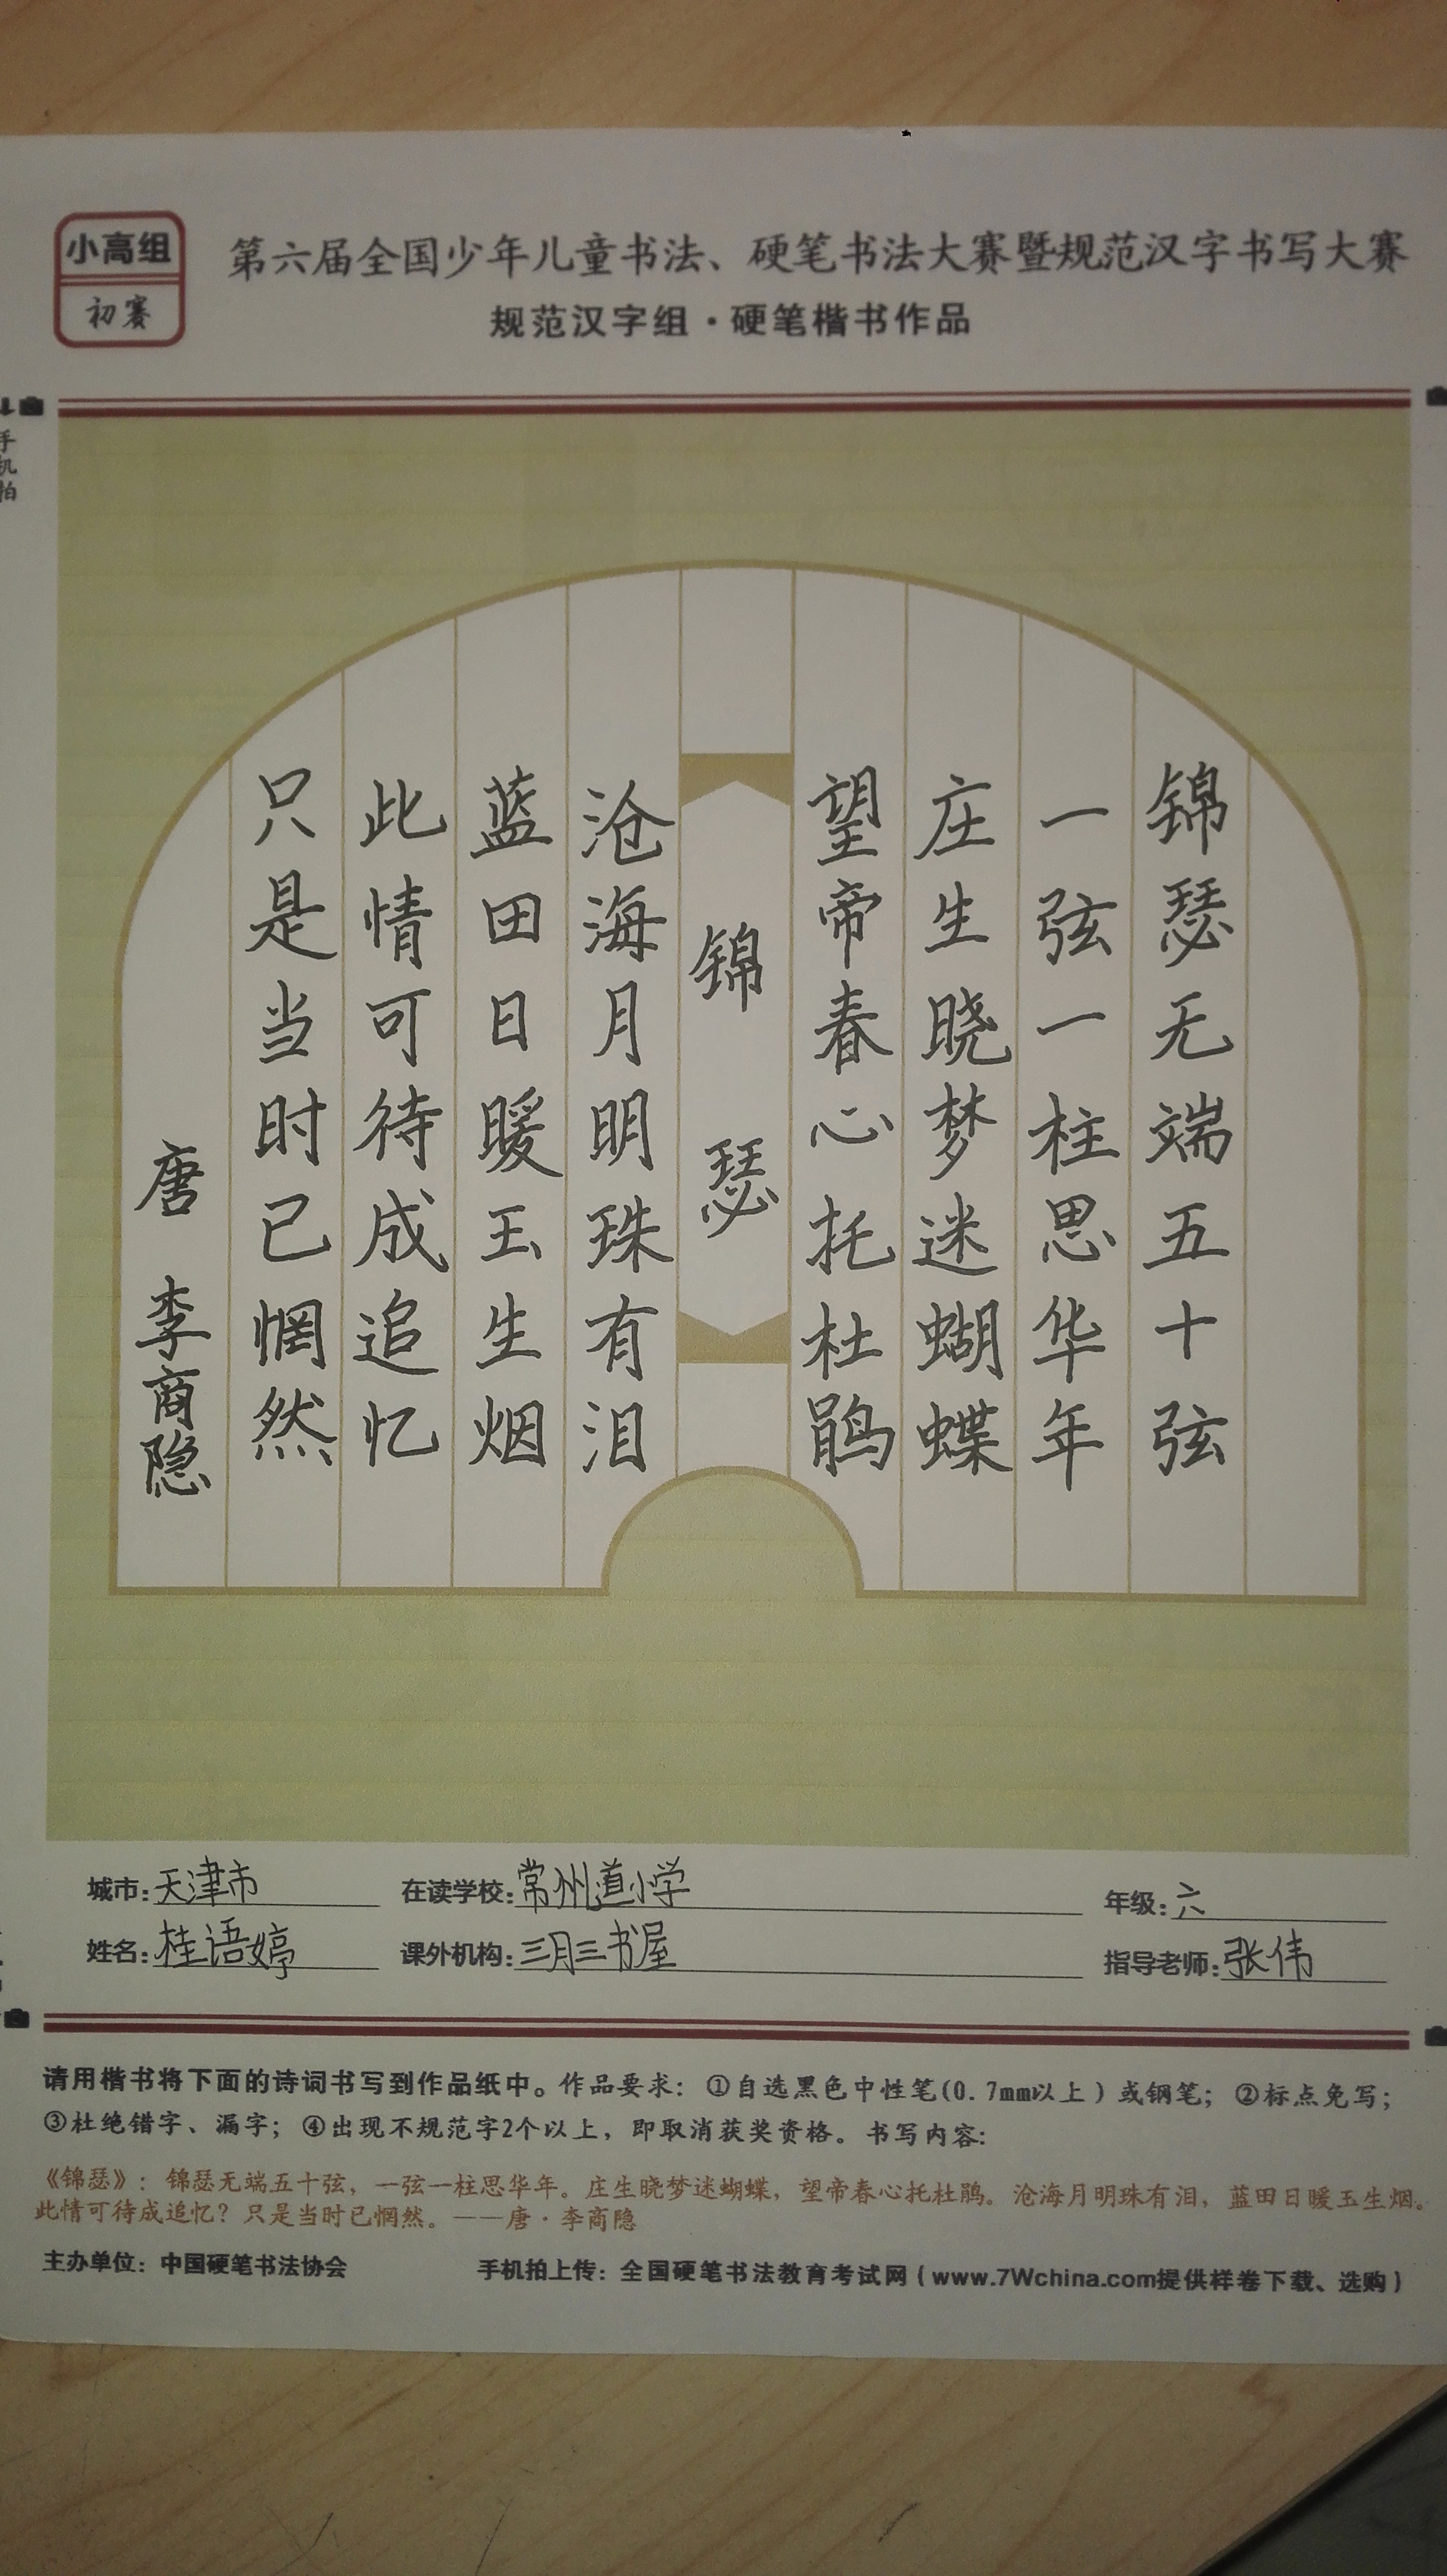 小高组
初赛
第六届全国少年儿童书法、硬笔书法大赛暨规范汉字书写大赛
规范汉字组·硬笔楷书作品
手机拍
锦瑟无端五十弦
一弦一柱思华年
庄生晓梦迷蝴蝶
望帝春心托杜鹃
锦瑟
沧海月明珠有泪
蓝田日暖玉生烟
此情可待成追忆
只是当时已惘然
唐 李商隐
城市：天津市 在读学校：常州道小学 年级：六
姓名：桂语婷 课外机构：三月三书屋 指导老师：张伟
请用楷书将下面的诗词书写到作品纸中。作品要求：①自选黑色中性笔(0.7mm以上)或钢笔；②标点免写；
③杜绝错字、漏字；④出现不规范字2个以上，即取消获奖资格。书写内容：
《锦瑟》：锦瑟无端五十弦，一弦一柱思华年。庄生晓梦迷蝴蝶，望帝春心托杜鹃。沧海月明珠有泪，蓝田日暖玉生烟。
此情可待成追忆？只是当时已惘然。——唐·李商隐
主办单位：中国硬笔书法协会 手机拍上传：全国硬笔书法教育考试网（www.7Wchina.com提供样卷下载、选购）